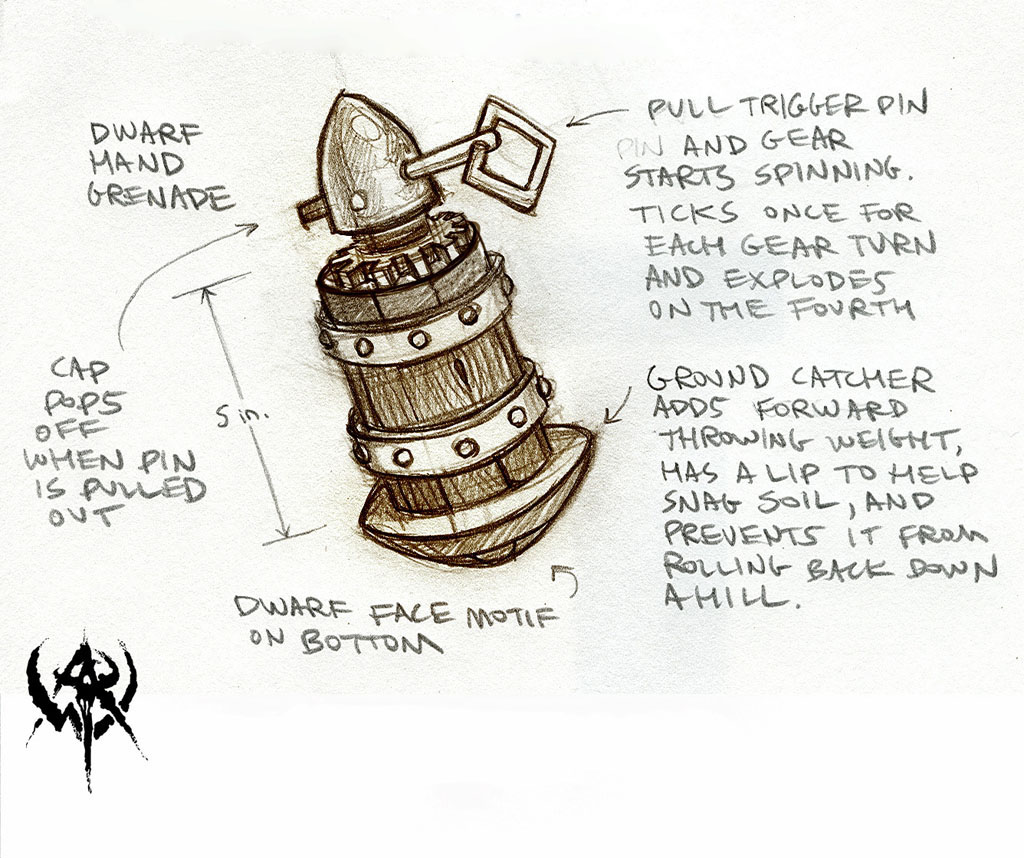 DWARF
HAND
GRENADE
PULL TRIGGER PIN
PIN AND GEAR
STARTS SPINNING.
TICKS ONCE FOR
EACH GEAR TURN
AND EXPLODES
ON THE FOURTH
CAP
POPS
OFF
WHEN PIN
IS PULLED
OUT
5 in.
GROUND CATCHER
ADDS FORWARD
THROWING WEIGHT,
HAS A LIP TO HELP
SNAG SOIL, AND
PREVENTS IT FROM
ROLLING BACK DOWN
A HILL.
DWARF FACE MOTIF
ON BOTTOM
WAR